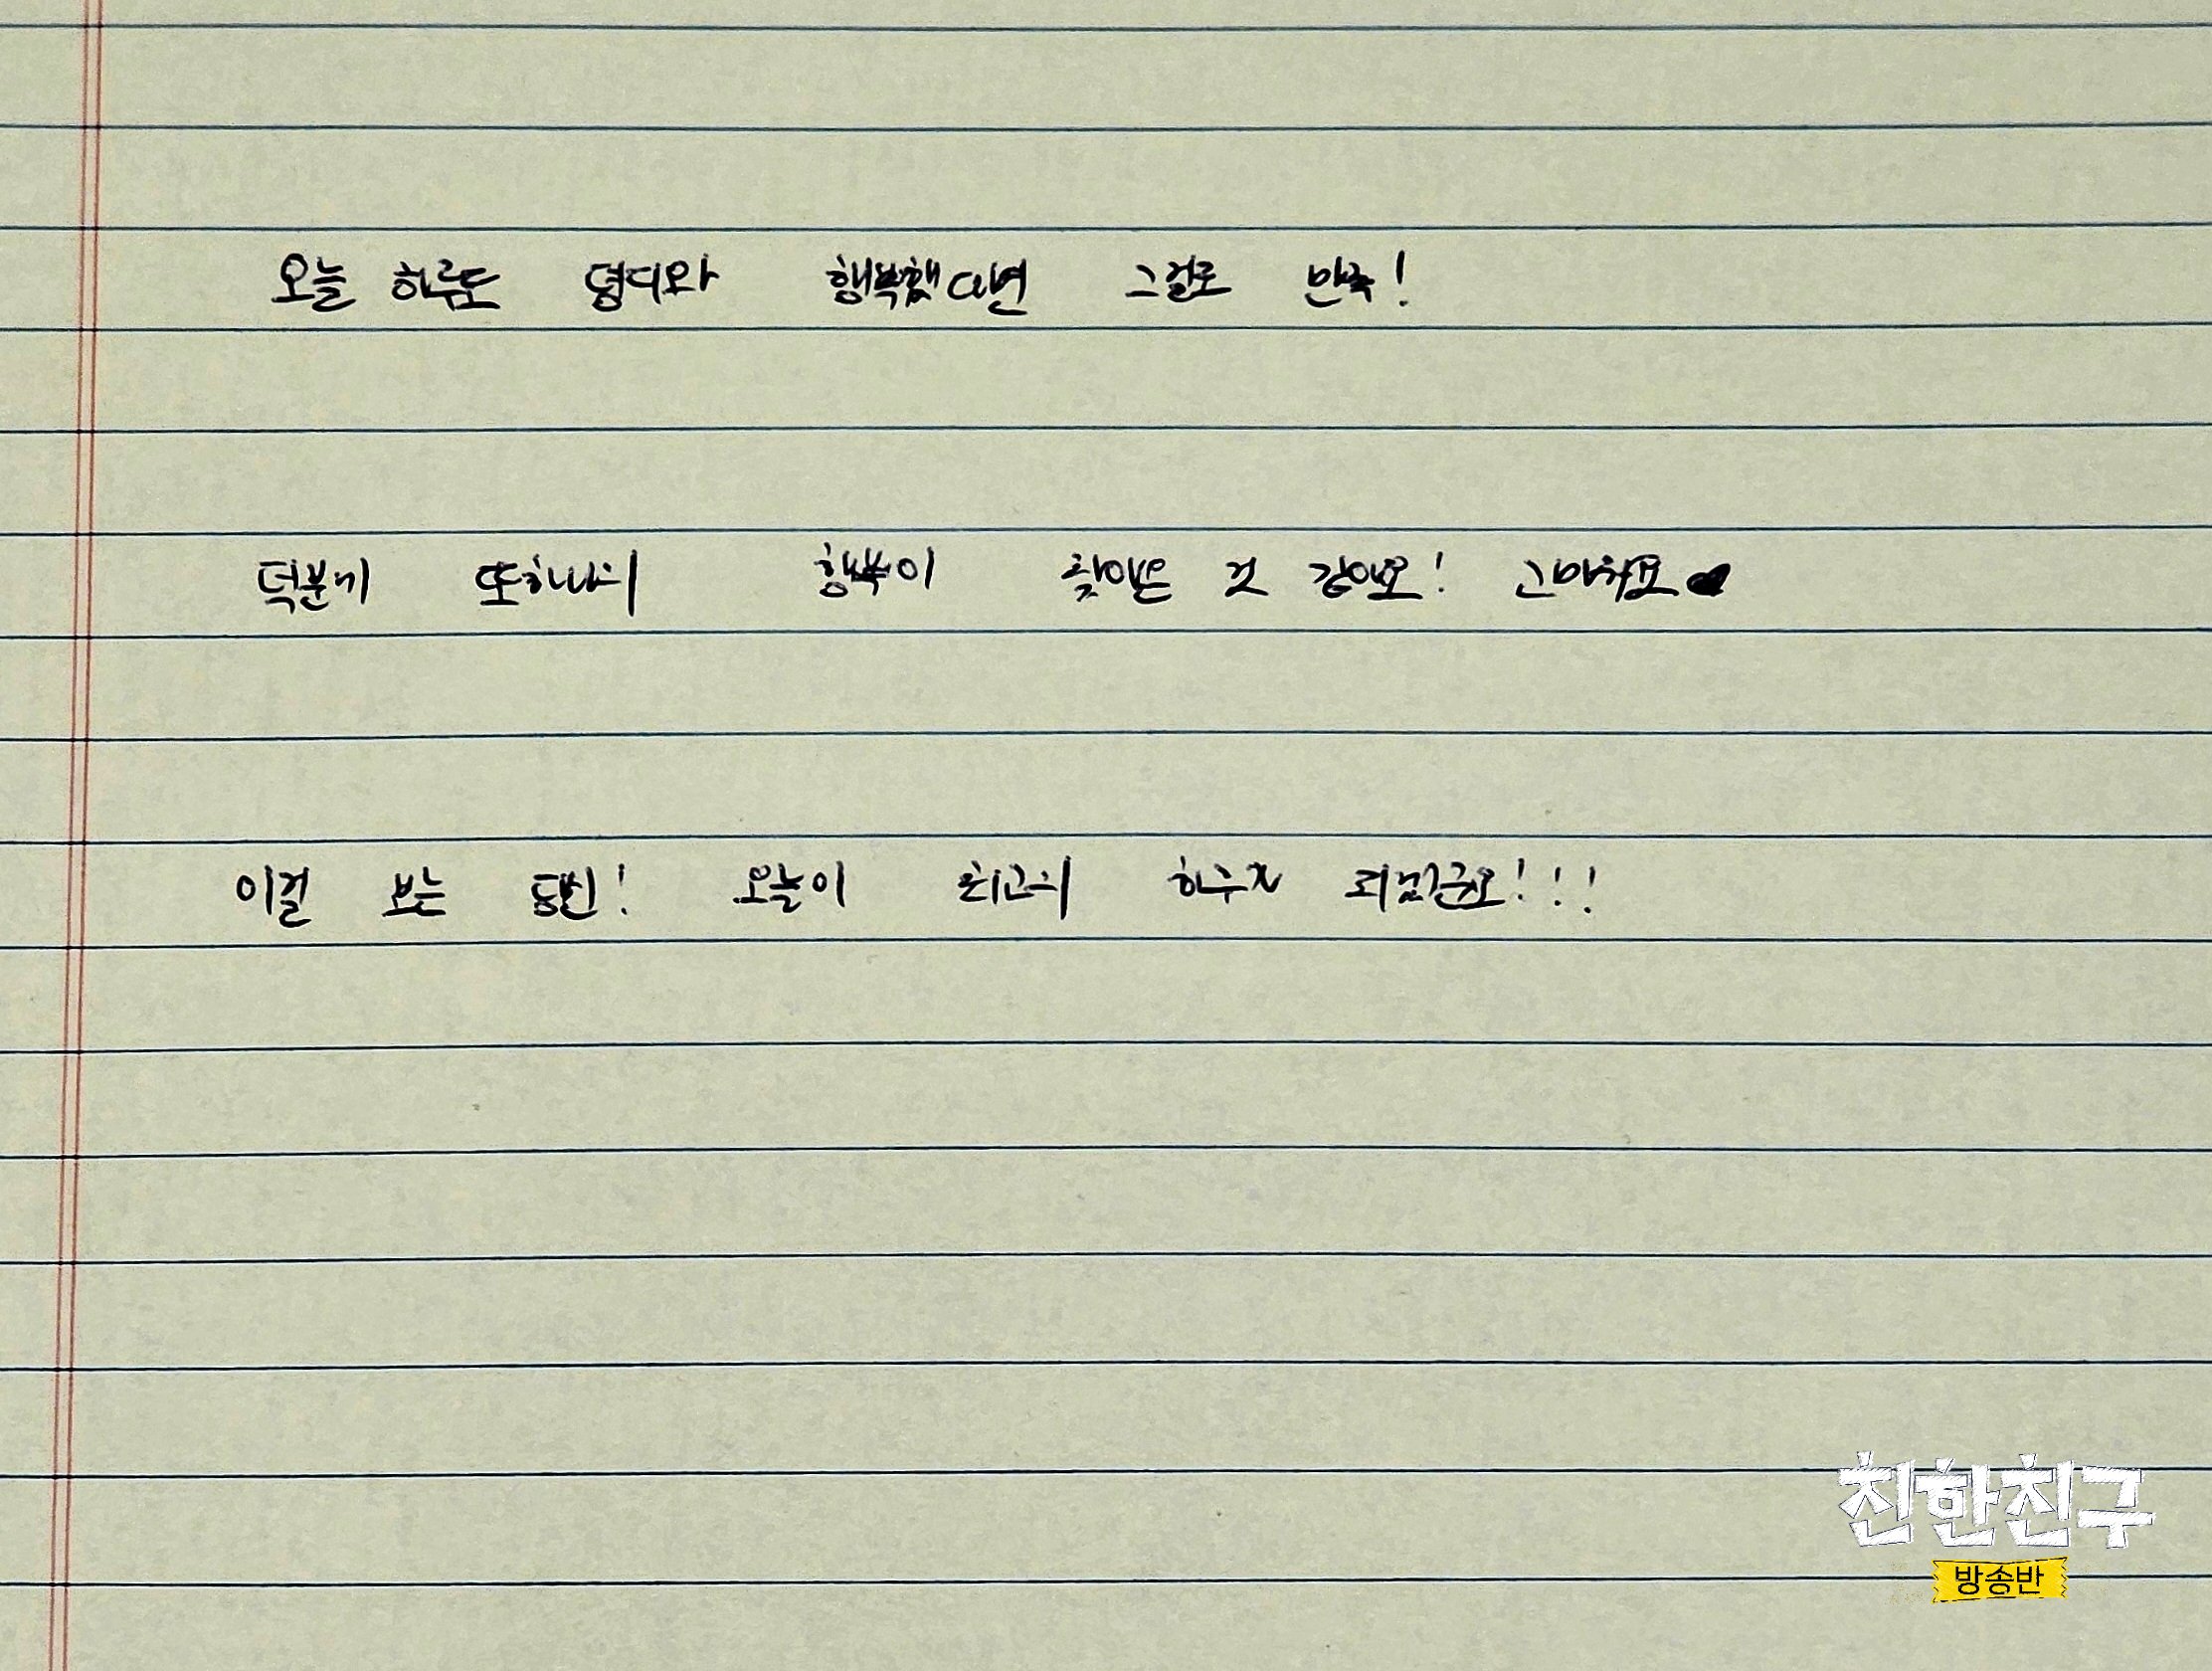 오늘 하루도 뎡디와 행복했다면 그걸로 만족!
덕분에 또하나의 행복이 찾아온 것 같아요! 고마워요♥
이걸 보는 당신! 오늘이 최고의 하루가 되겠군요!!!
친한친구
방송반